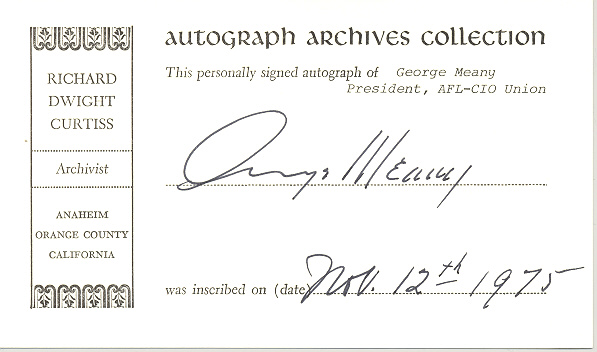 AUTOGRAPH ARCHIVES COLLECTION
RICHARD
DWIGHT
CURTISS
Archivist
ANAHEIM
ORANGE COUNTY
CALIFORNIA
This personally signed autograph of George Meany
President, AFL-CIO Union
George Meany
was inscribed on (date) Nov. 12th 1975